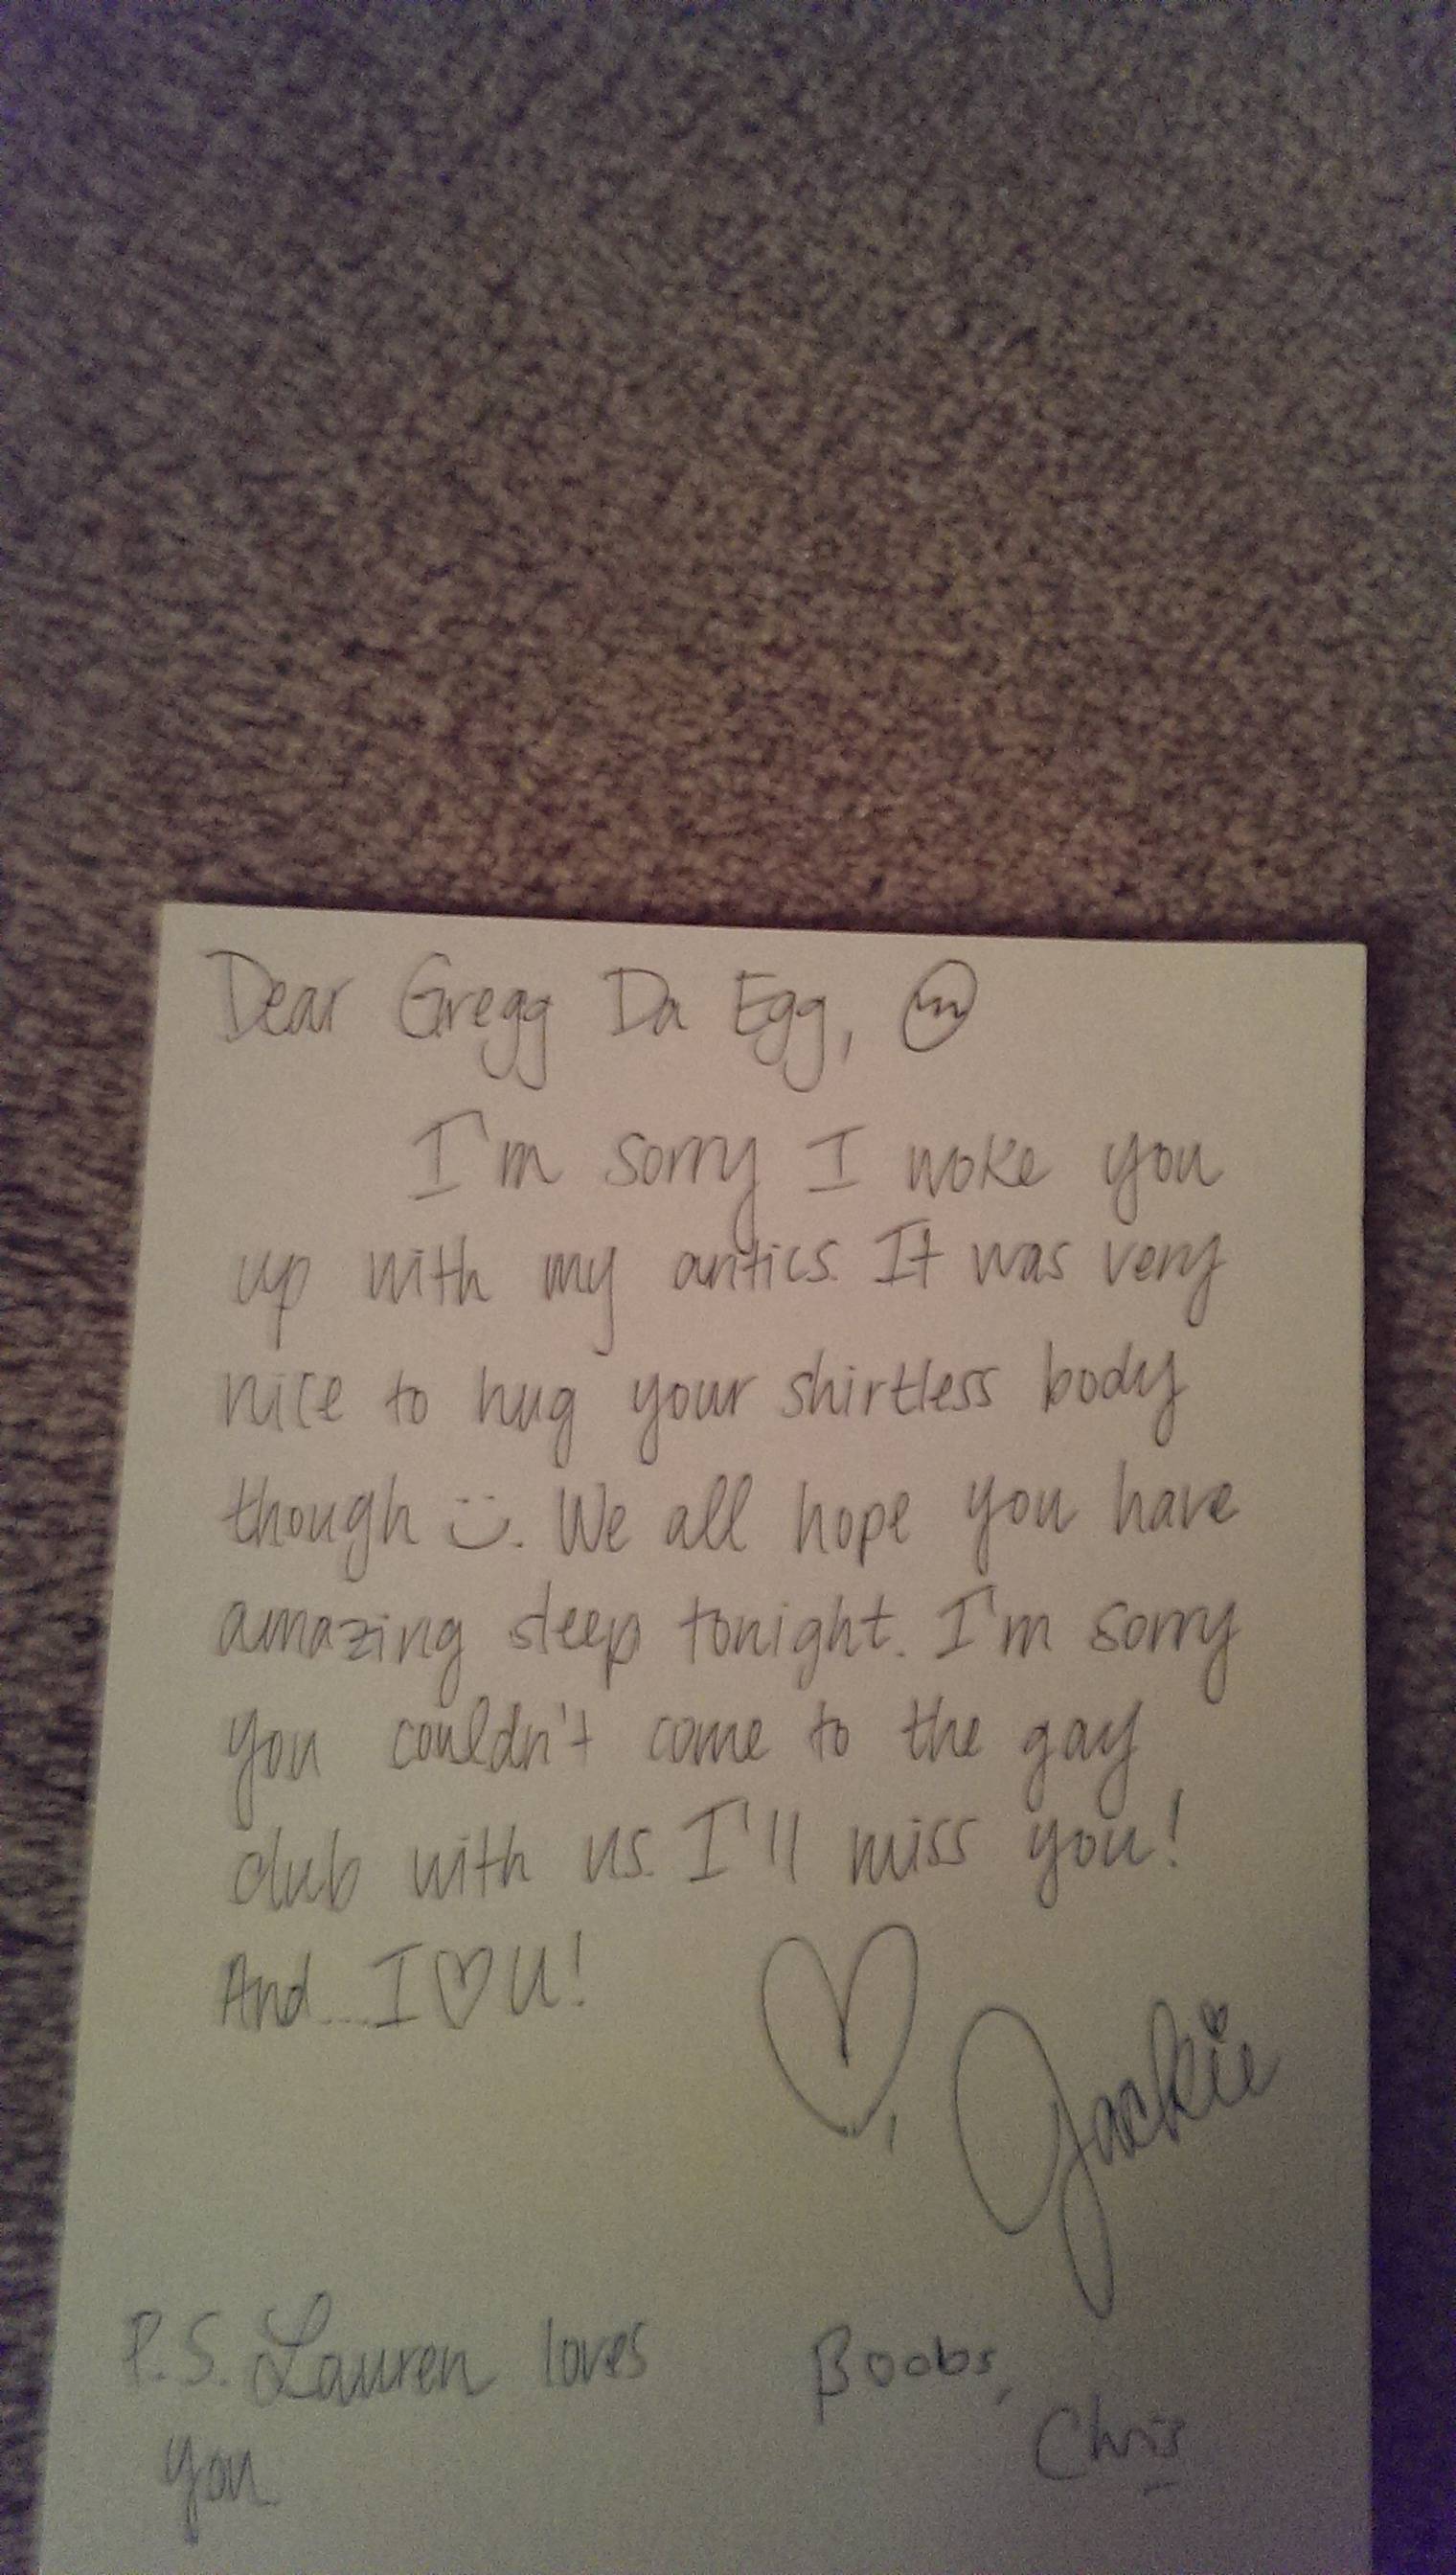 Dear Gregg Da Egg,
I'm sorry I woke you
up with my antics. It was very
nice to hug your shirtless body
though :). We all hope you have
amazing sleep tonight. I'm sorry
you couldn't come to the gay
club with us. I'll miss you!
And... I ♡ U!
♡, Jackie
P.S. Lauren loves
you
Boobs,
Chris